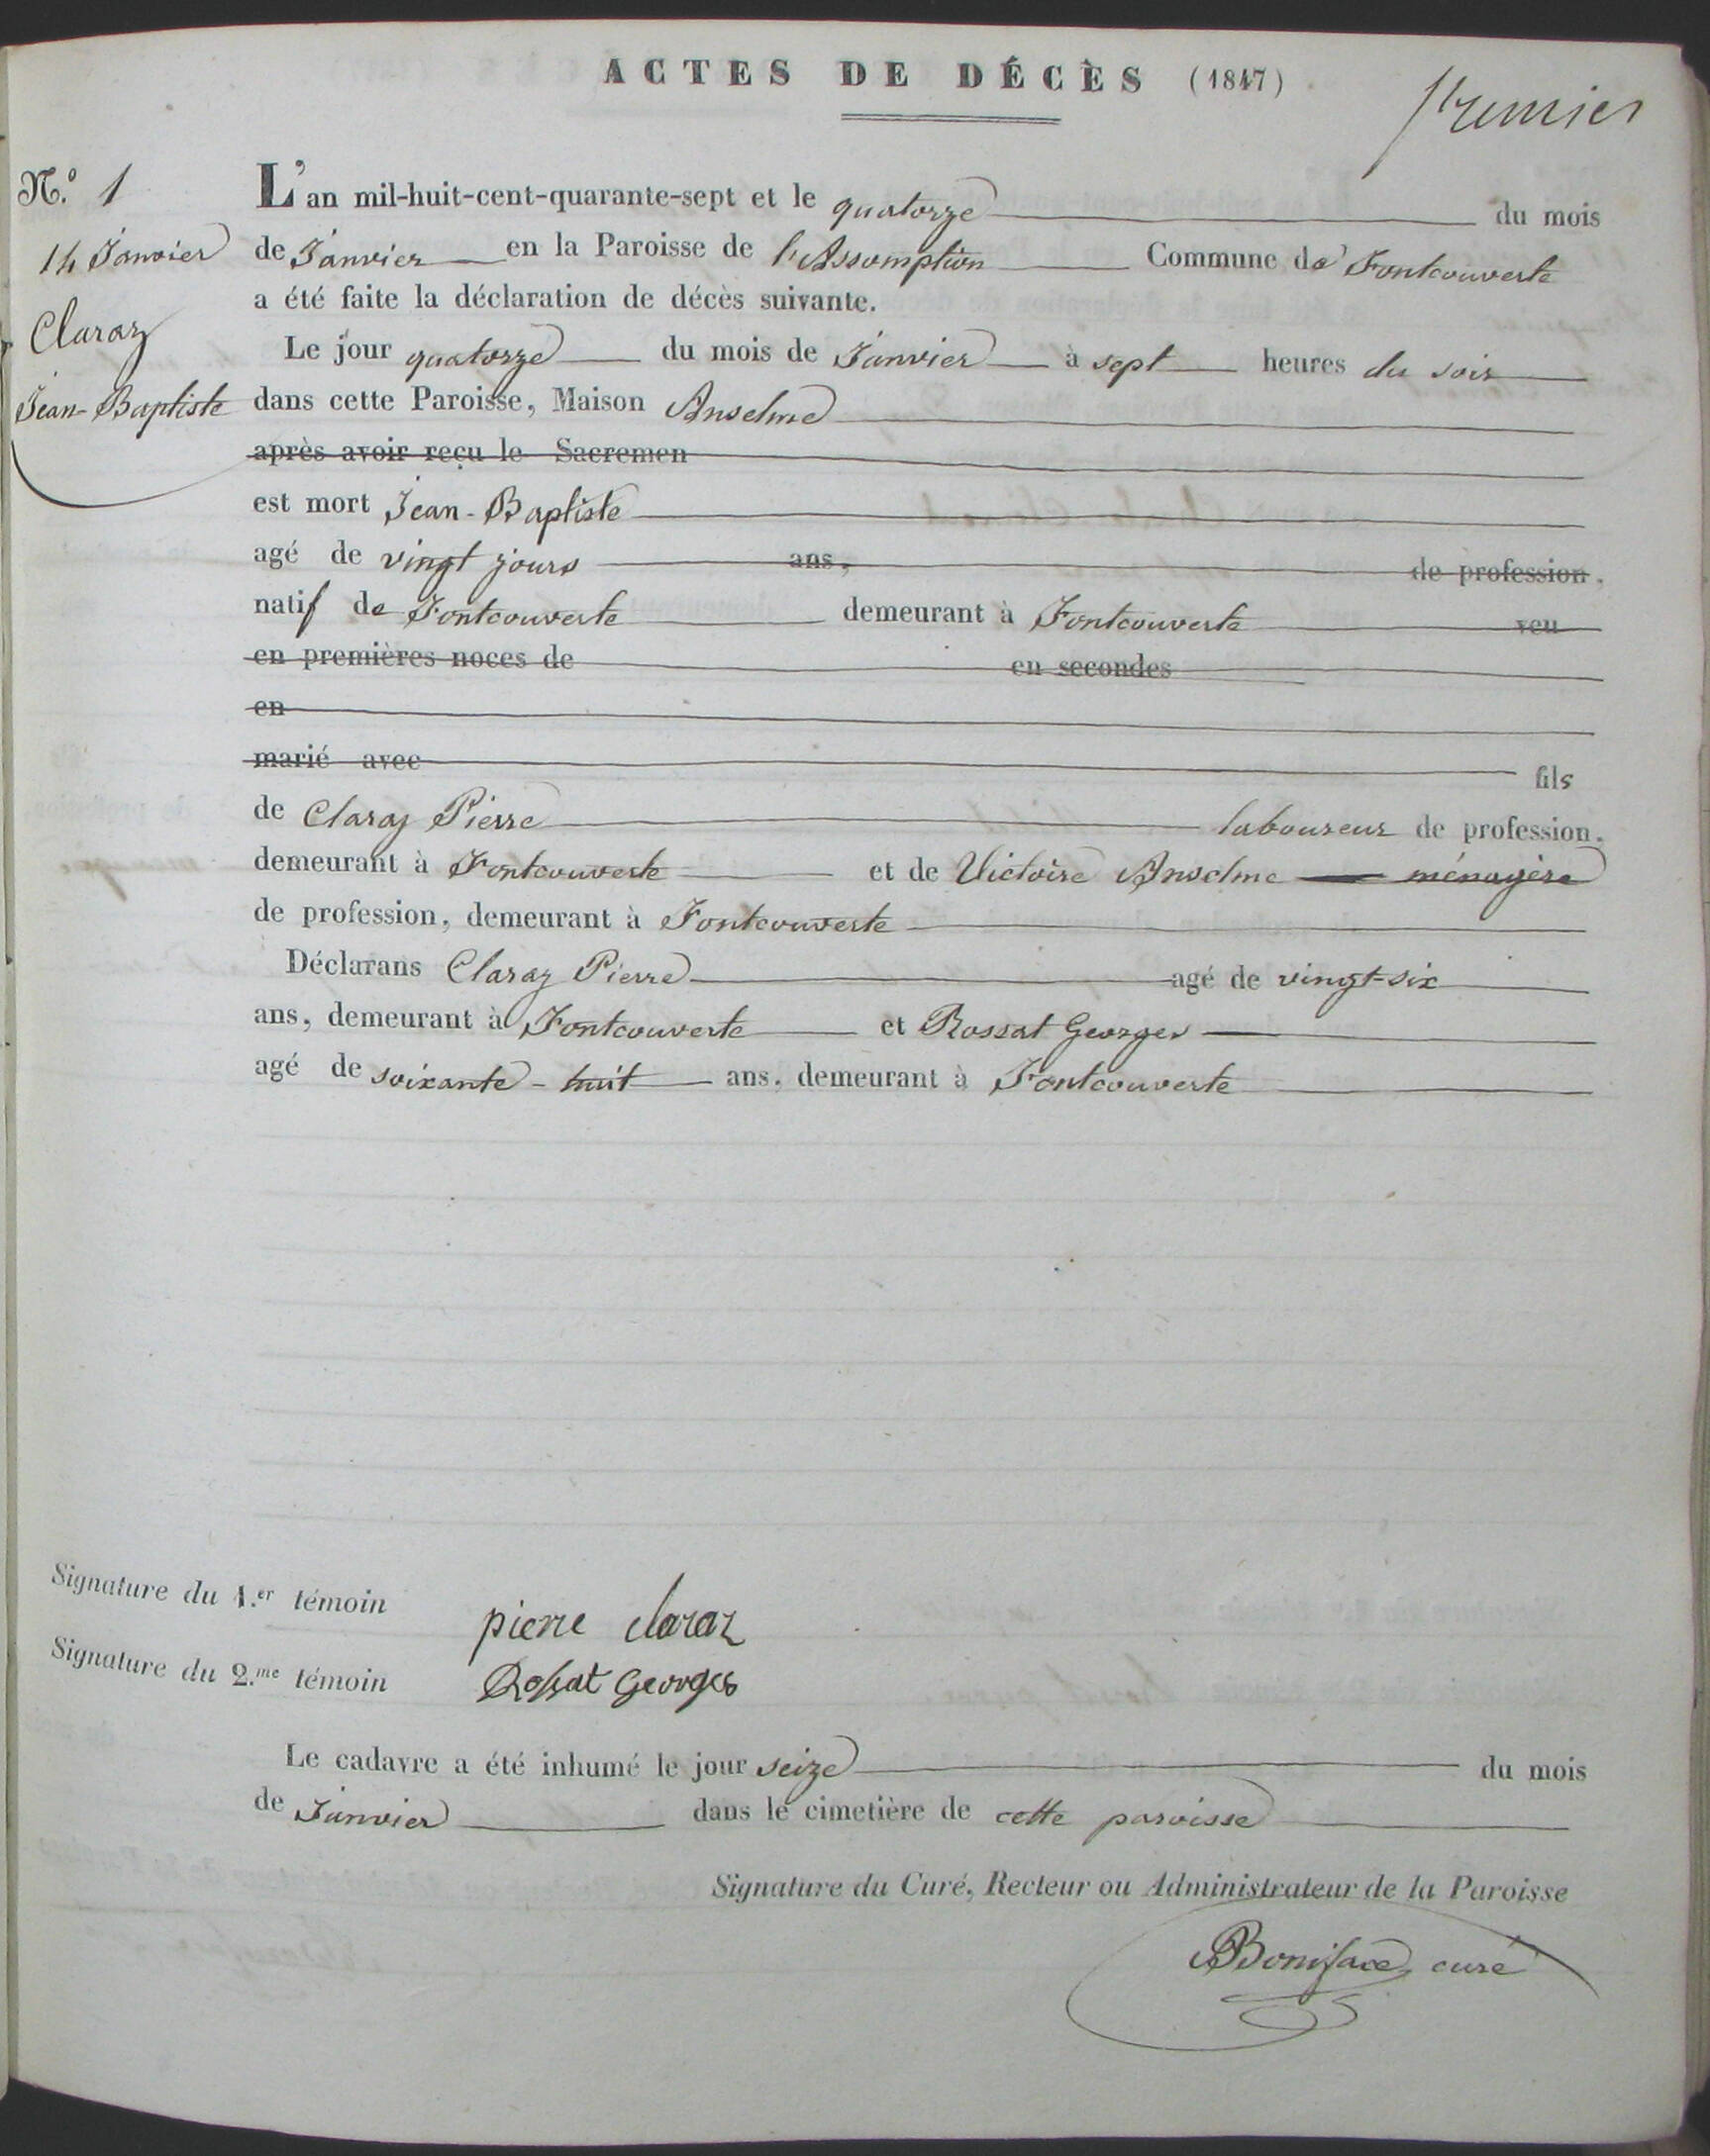 ACTES DE DÉCÈS (1847)
premier
N.º 1
14 Janvier
Claraz
Jean-Baptiste
L'an mil-huit-cent-quarante-sept et le quatorze du mois
de Janvier en la Paroisse de l'Assomption Commune de Fontcouverte
a été faite la déclaration de décès suivante.
Le jour quatorze du mois de Janvier à sept heures du soir
dans cette Paroisse, Maison Anselme
après avoir reçu le Sacremen
est mort Jean-Baptiste
agé de vingt jours ans, de profession.
natif de Fontcouverte demeurant à Fontcouverte veu
en premières noces de en secondes
en
marié avec fils
de Claraz Pierre laboureur de profession.
demeurant à Fontcouverte et de Victoire Anselme ménagère
de profession, demeurant à Fontcouverte
Déclarans Claraz Pierre agé de vingt-six
ans, demeurant à Fontcouverte et Rossat Georges
agé de soixante-huit ans, demeurant à Fontcouverte
Signature du 1.er témoin pierre claraz
Signature du 2.me témoin Rossat Georges
Le cadavre a été inhumé le jour seize du mois
de Janvier dans le cimetière de cette paroisse
Signature du Curé, Recteur ou Administrateur de la Paroisse
Boniface, curé